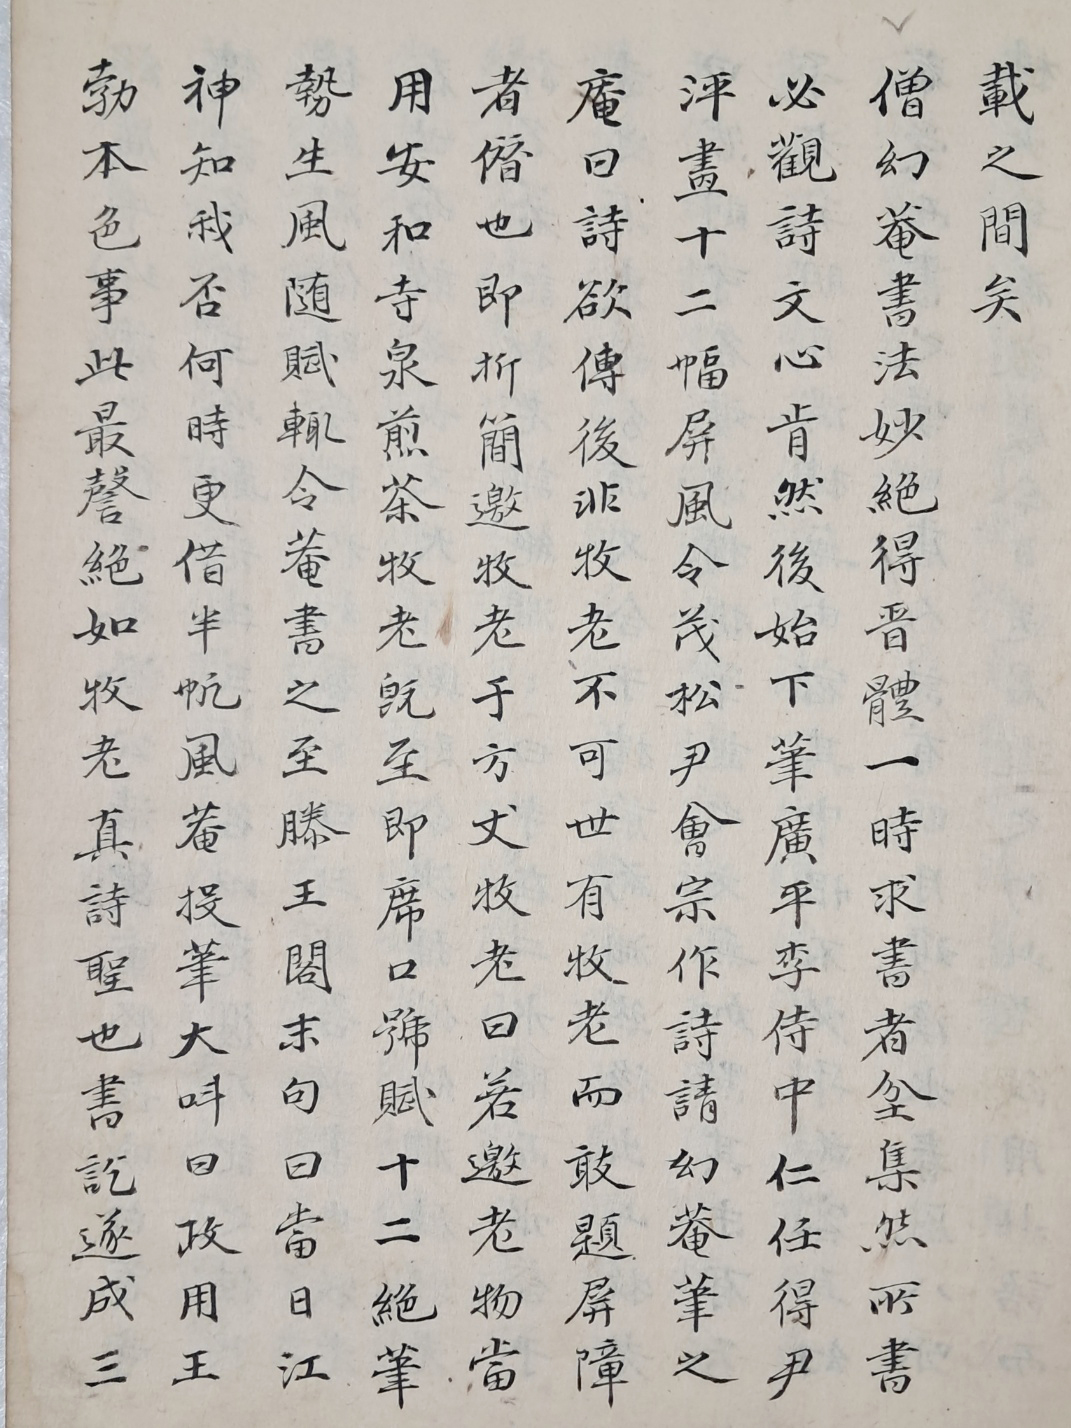 載之間矣
僧幻菴書法妙絕得晋體一時求書者坌集然所書
必觀詩文心肯然後始下筆廣平李侍中仁任得尹
泙畫十二幅屏風令茂松尹會宗作詩請幻菴筆之
庵曰詩欲傳後非牧老不可世有牧老而敢題屏障
者僭也即折簡邀牧老于方丈牧老曰若邀老物當
用安和寺泉煎茶牧老旣至即席口號賦十二絕筆
勢生風随賦輒令菴書之至滕王閣末句曰當日江
神知我否何時更借半帆風菴投筆大呌曰政用王
勃本色事此最謦絕如牧老真詩聖也書訖遂成三